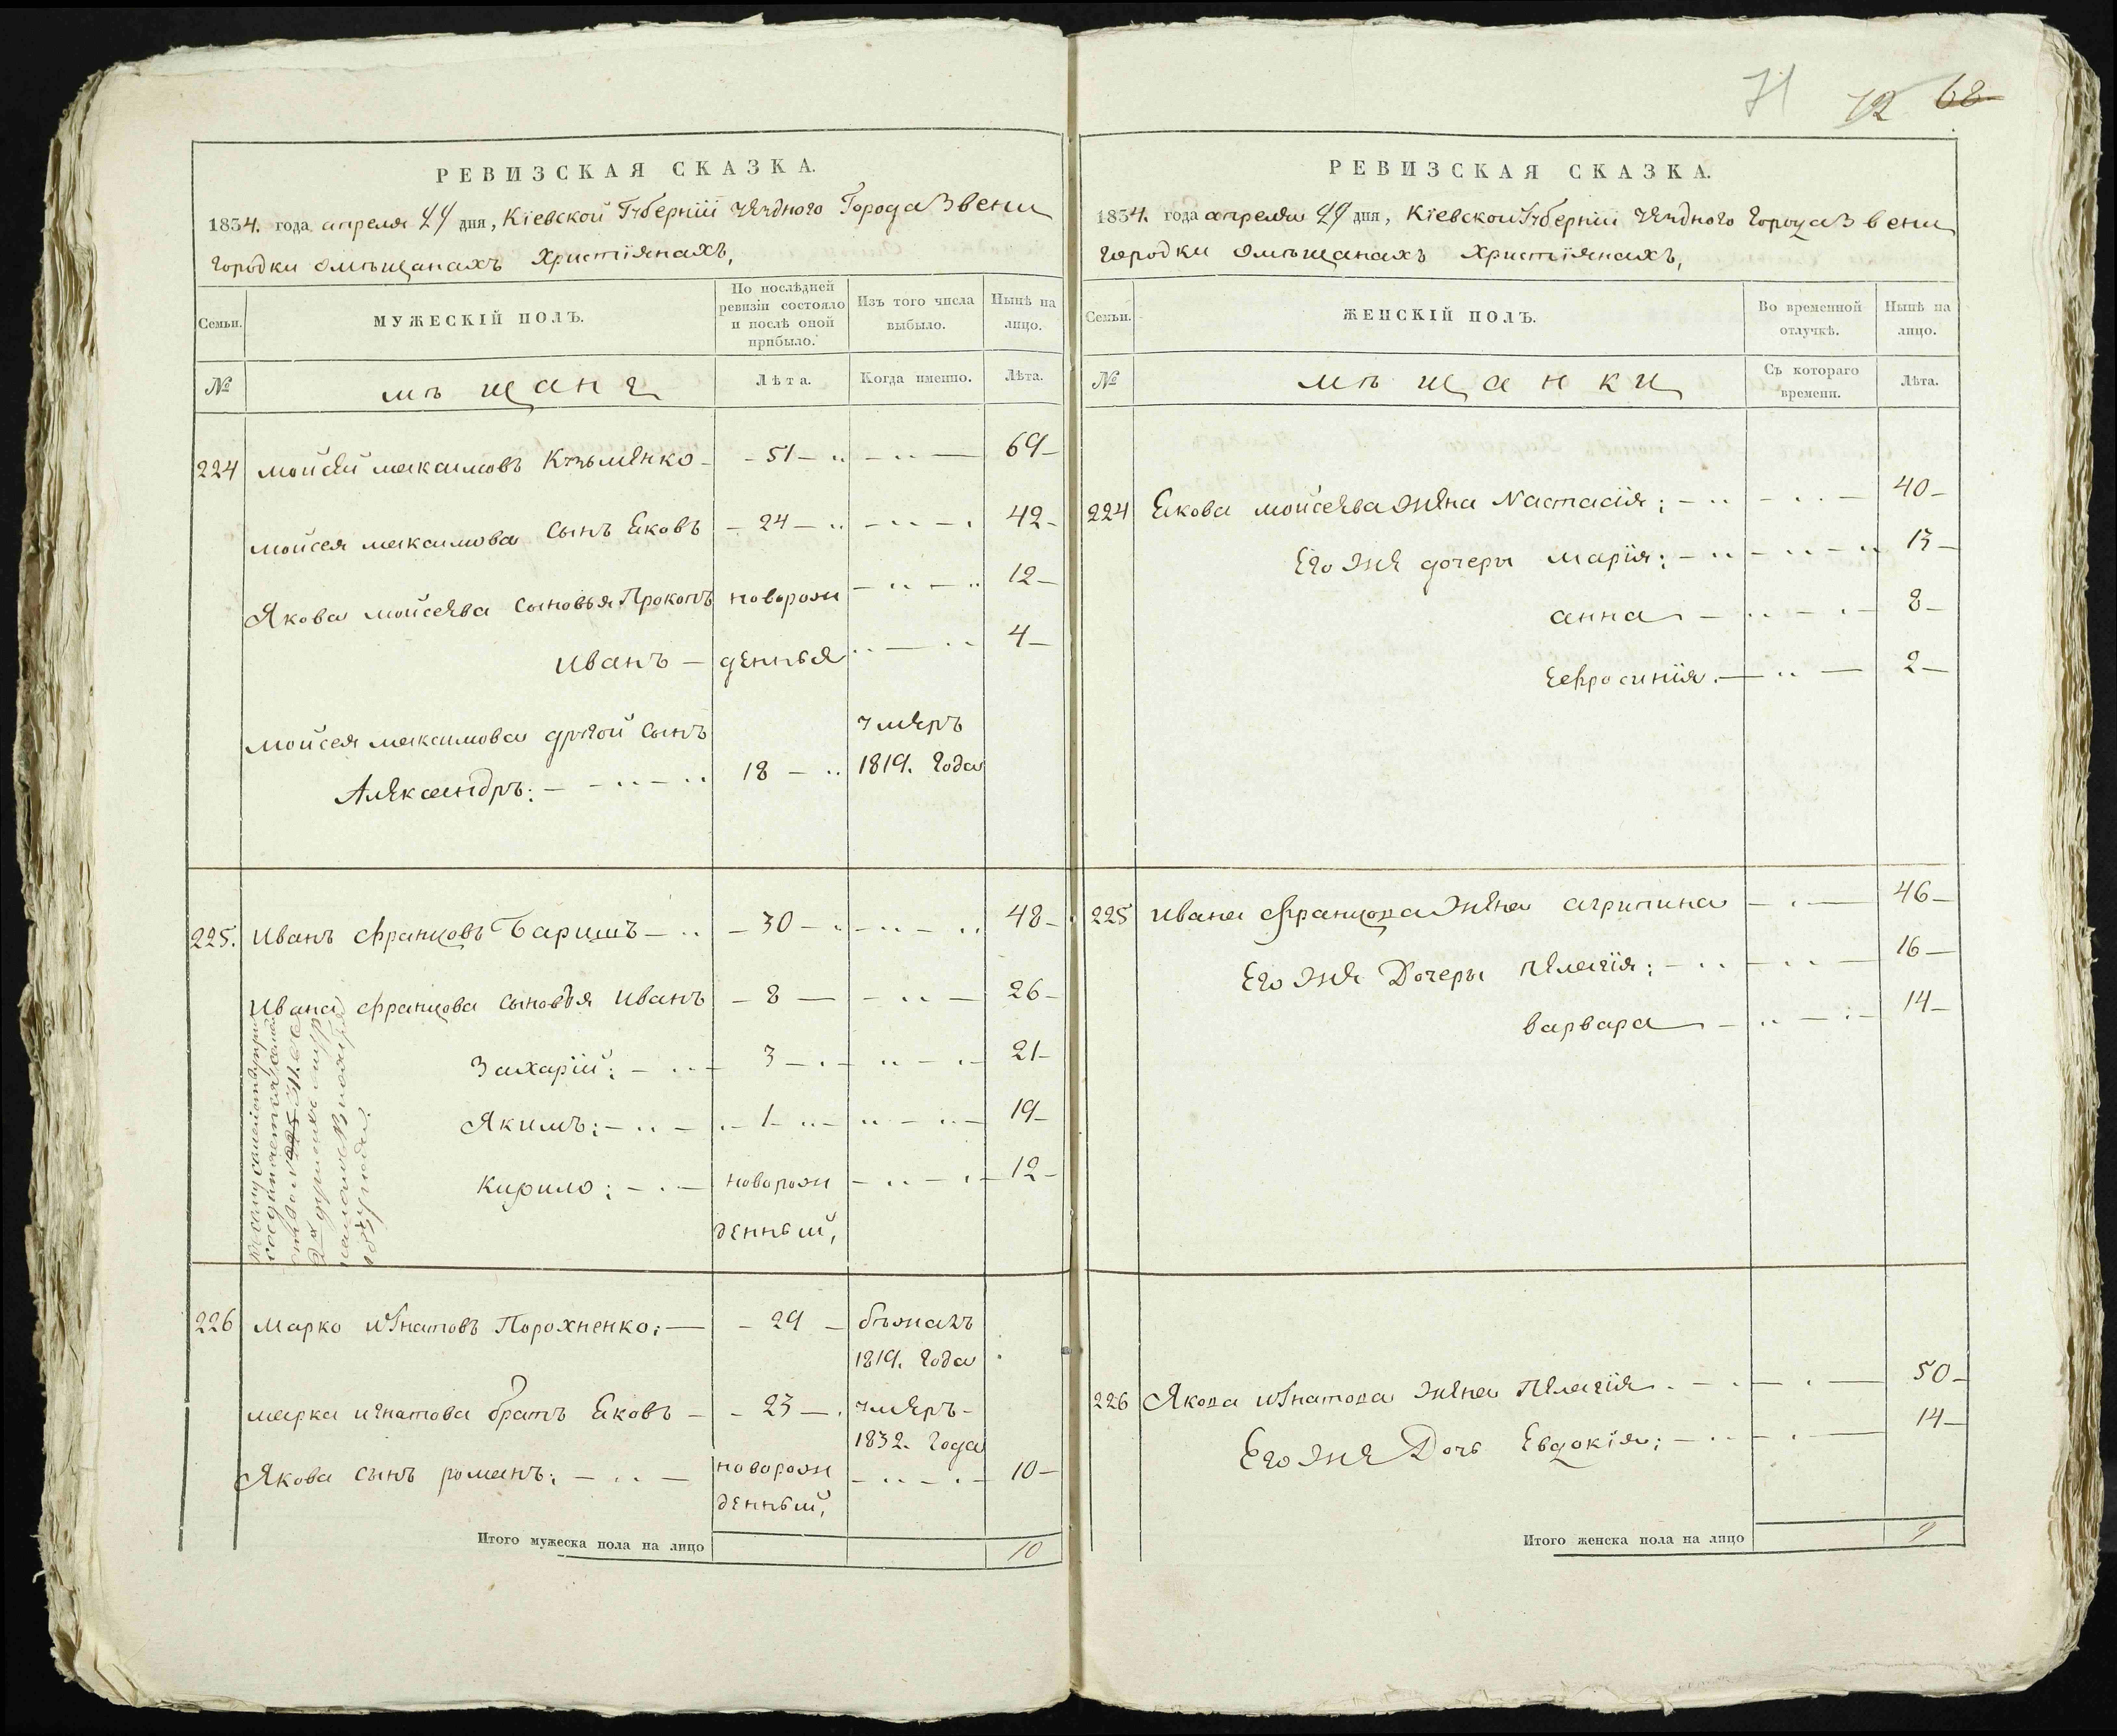 71 72 68
РЕВИЗСКАЯ СКАЗКА.
1834. года апреля 24 дня, Кіевской Губерніи уезднаго Города Звени
городки омѣщанахъ Христіянахъ,
Семьи.
МУЖЕСКІЙ ПОЛЪ.
По послѣдней ревизіи состояло и послѣ оной прибыло.
Изъ того числа выбыло.
Нынѣ на лицо.
№
мѣщанѣ
Лѣта.
Когда именно.
Лѣта.
224 Мойсей максимовъ Кузьменко - 51 - 69
Мойсея максимова сынъ Еаковъ - 24 - 42
Якова мойсеева сыновья Прокопъ новорож 12
Иванъ - денныя 4
Мойсея максимова другой сынъ умеръ
Александръ: 18 - 1819. года
225. Иванъ францовъ Баришъ - 30 - 48
Ивана францова сыновья Иванъ - 8 - 26
Захарій: - 3 - 21
Якимъ: - 1 - 19
Кирило: - новорож 12
денный,
226 Марко игнатовъ Порохненко: - 29 - бѣжалъ
1819. года
Марка игнатова братъ Еаковъ - 23 - умеръ -
1832. года
Якова сынъ романъ: - новорож 10
денный,
Итого мужеска пола на лицо 10
РЕВИЗСКАЯ СКАЗКА.
1834. года апреля 24 дня, Кіевской Губерніи уезднаго Города Звени
городки омѣщанахъ Христіянахъ,
Семьи.
ЖЕНСКІЙ ПОЛЪ.
Во временной отлучкѣ.
Нынѣ на лицо.
№
мѣщанки
Съ котораго времени.
Лѣта.
224 Еакова мойсеева жена Настасія: 40
Его же дочеры марія: 13
анна 8
Eефросинія. 2
225 Ивана францова жена агрипина 46
Его же Дочеры пелагія: 16
варвара 14
226 Якова игнатова жена Пелагія. 50
Его же Дочь Евдокія: 14
Итого женска пола на лицо 9